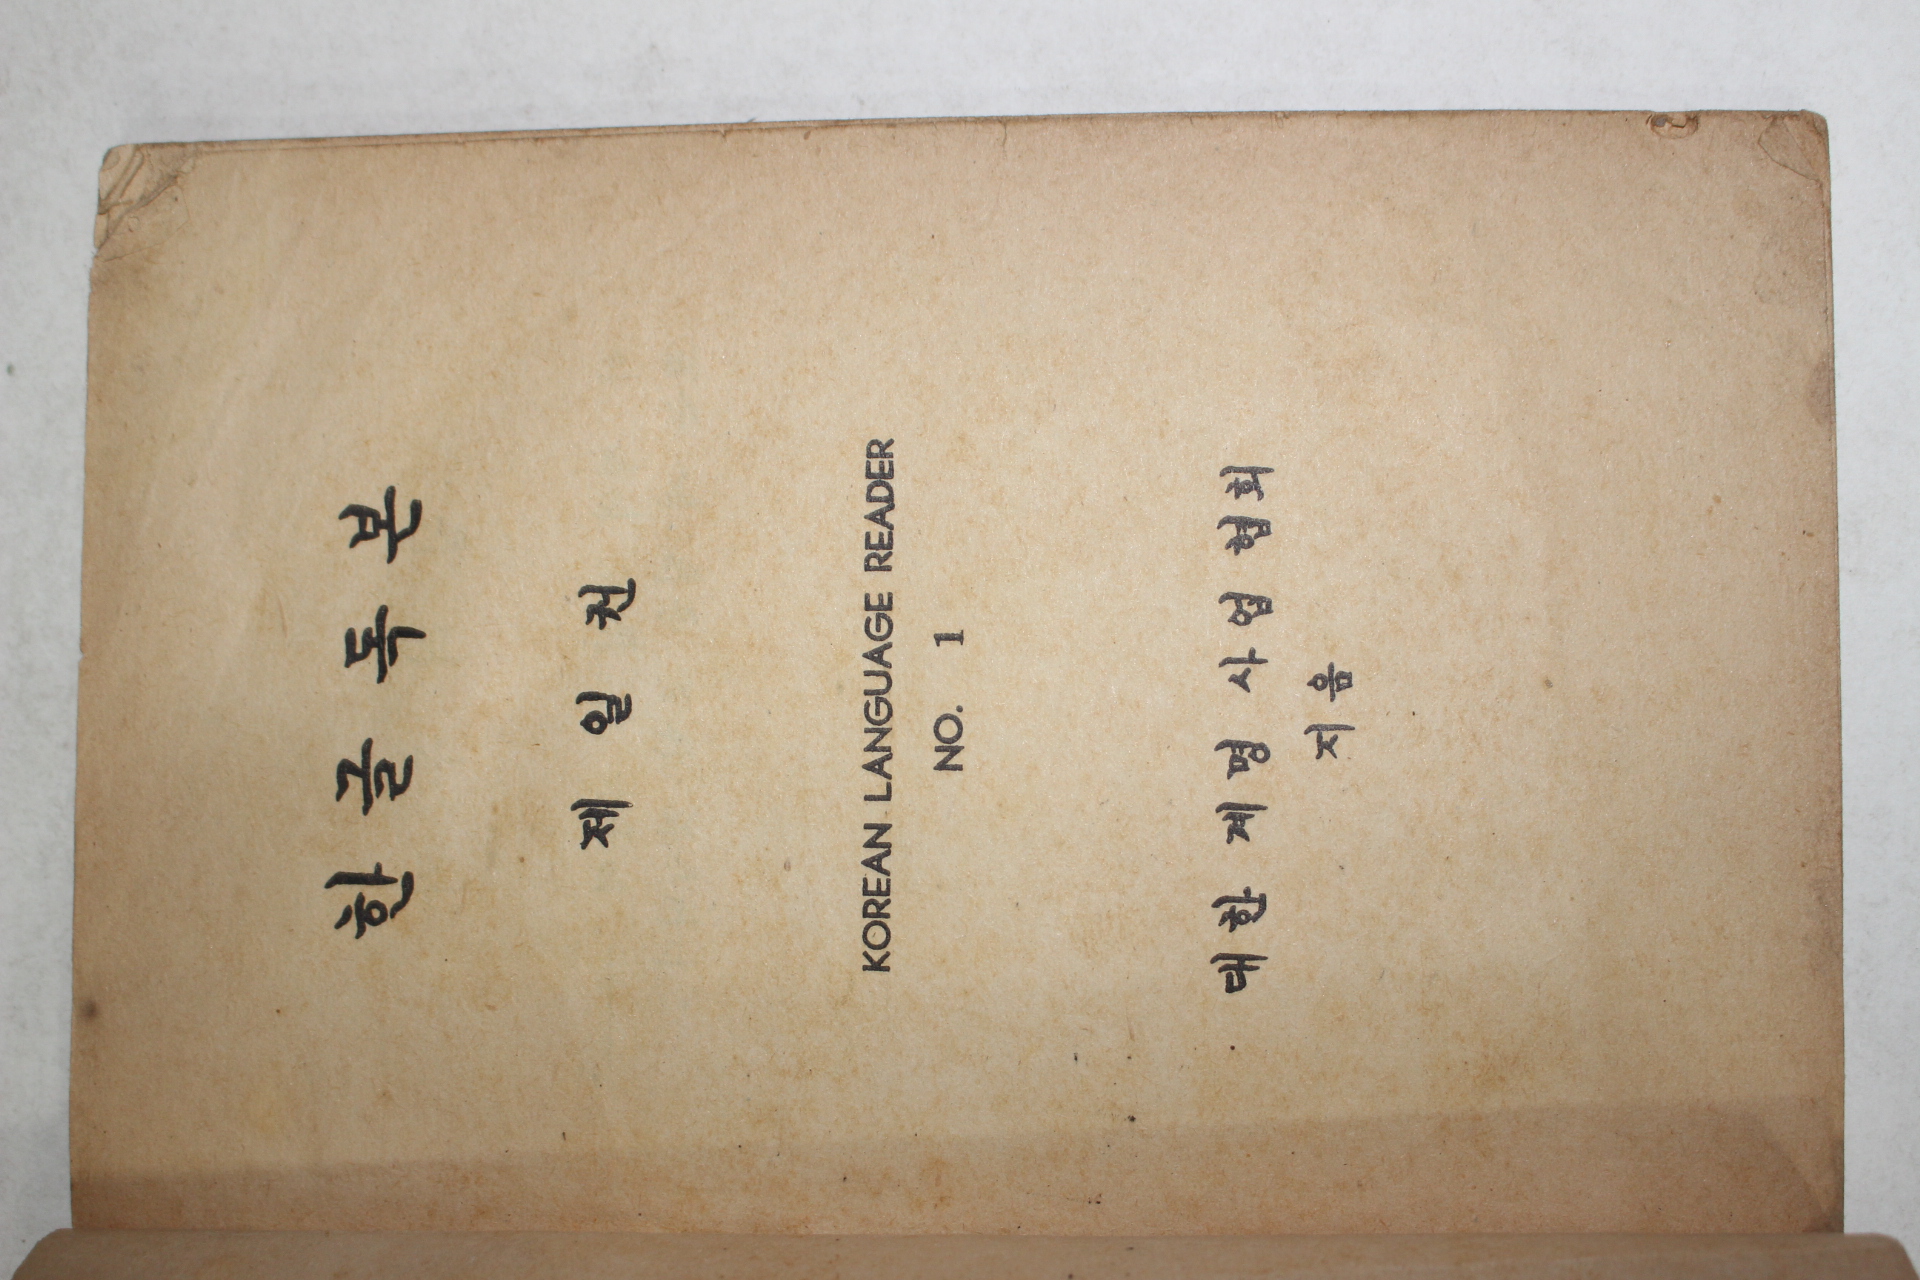 한글독본
제일권
KOREAN LANGUAGE READER
NO. 1
대한계명사업협회
지음